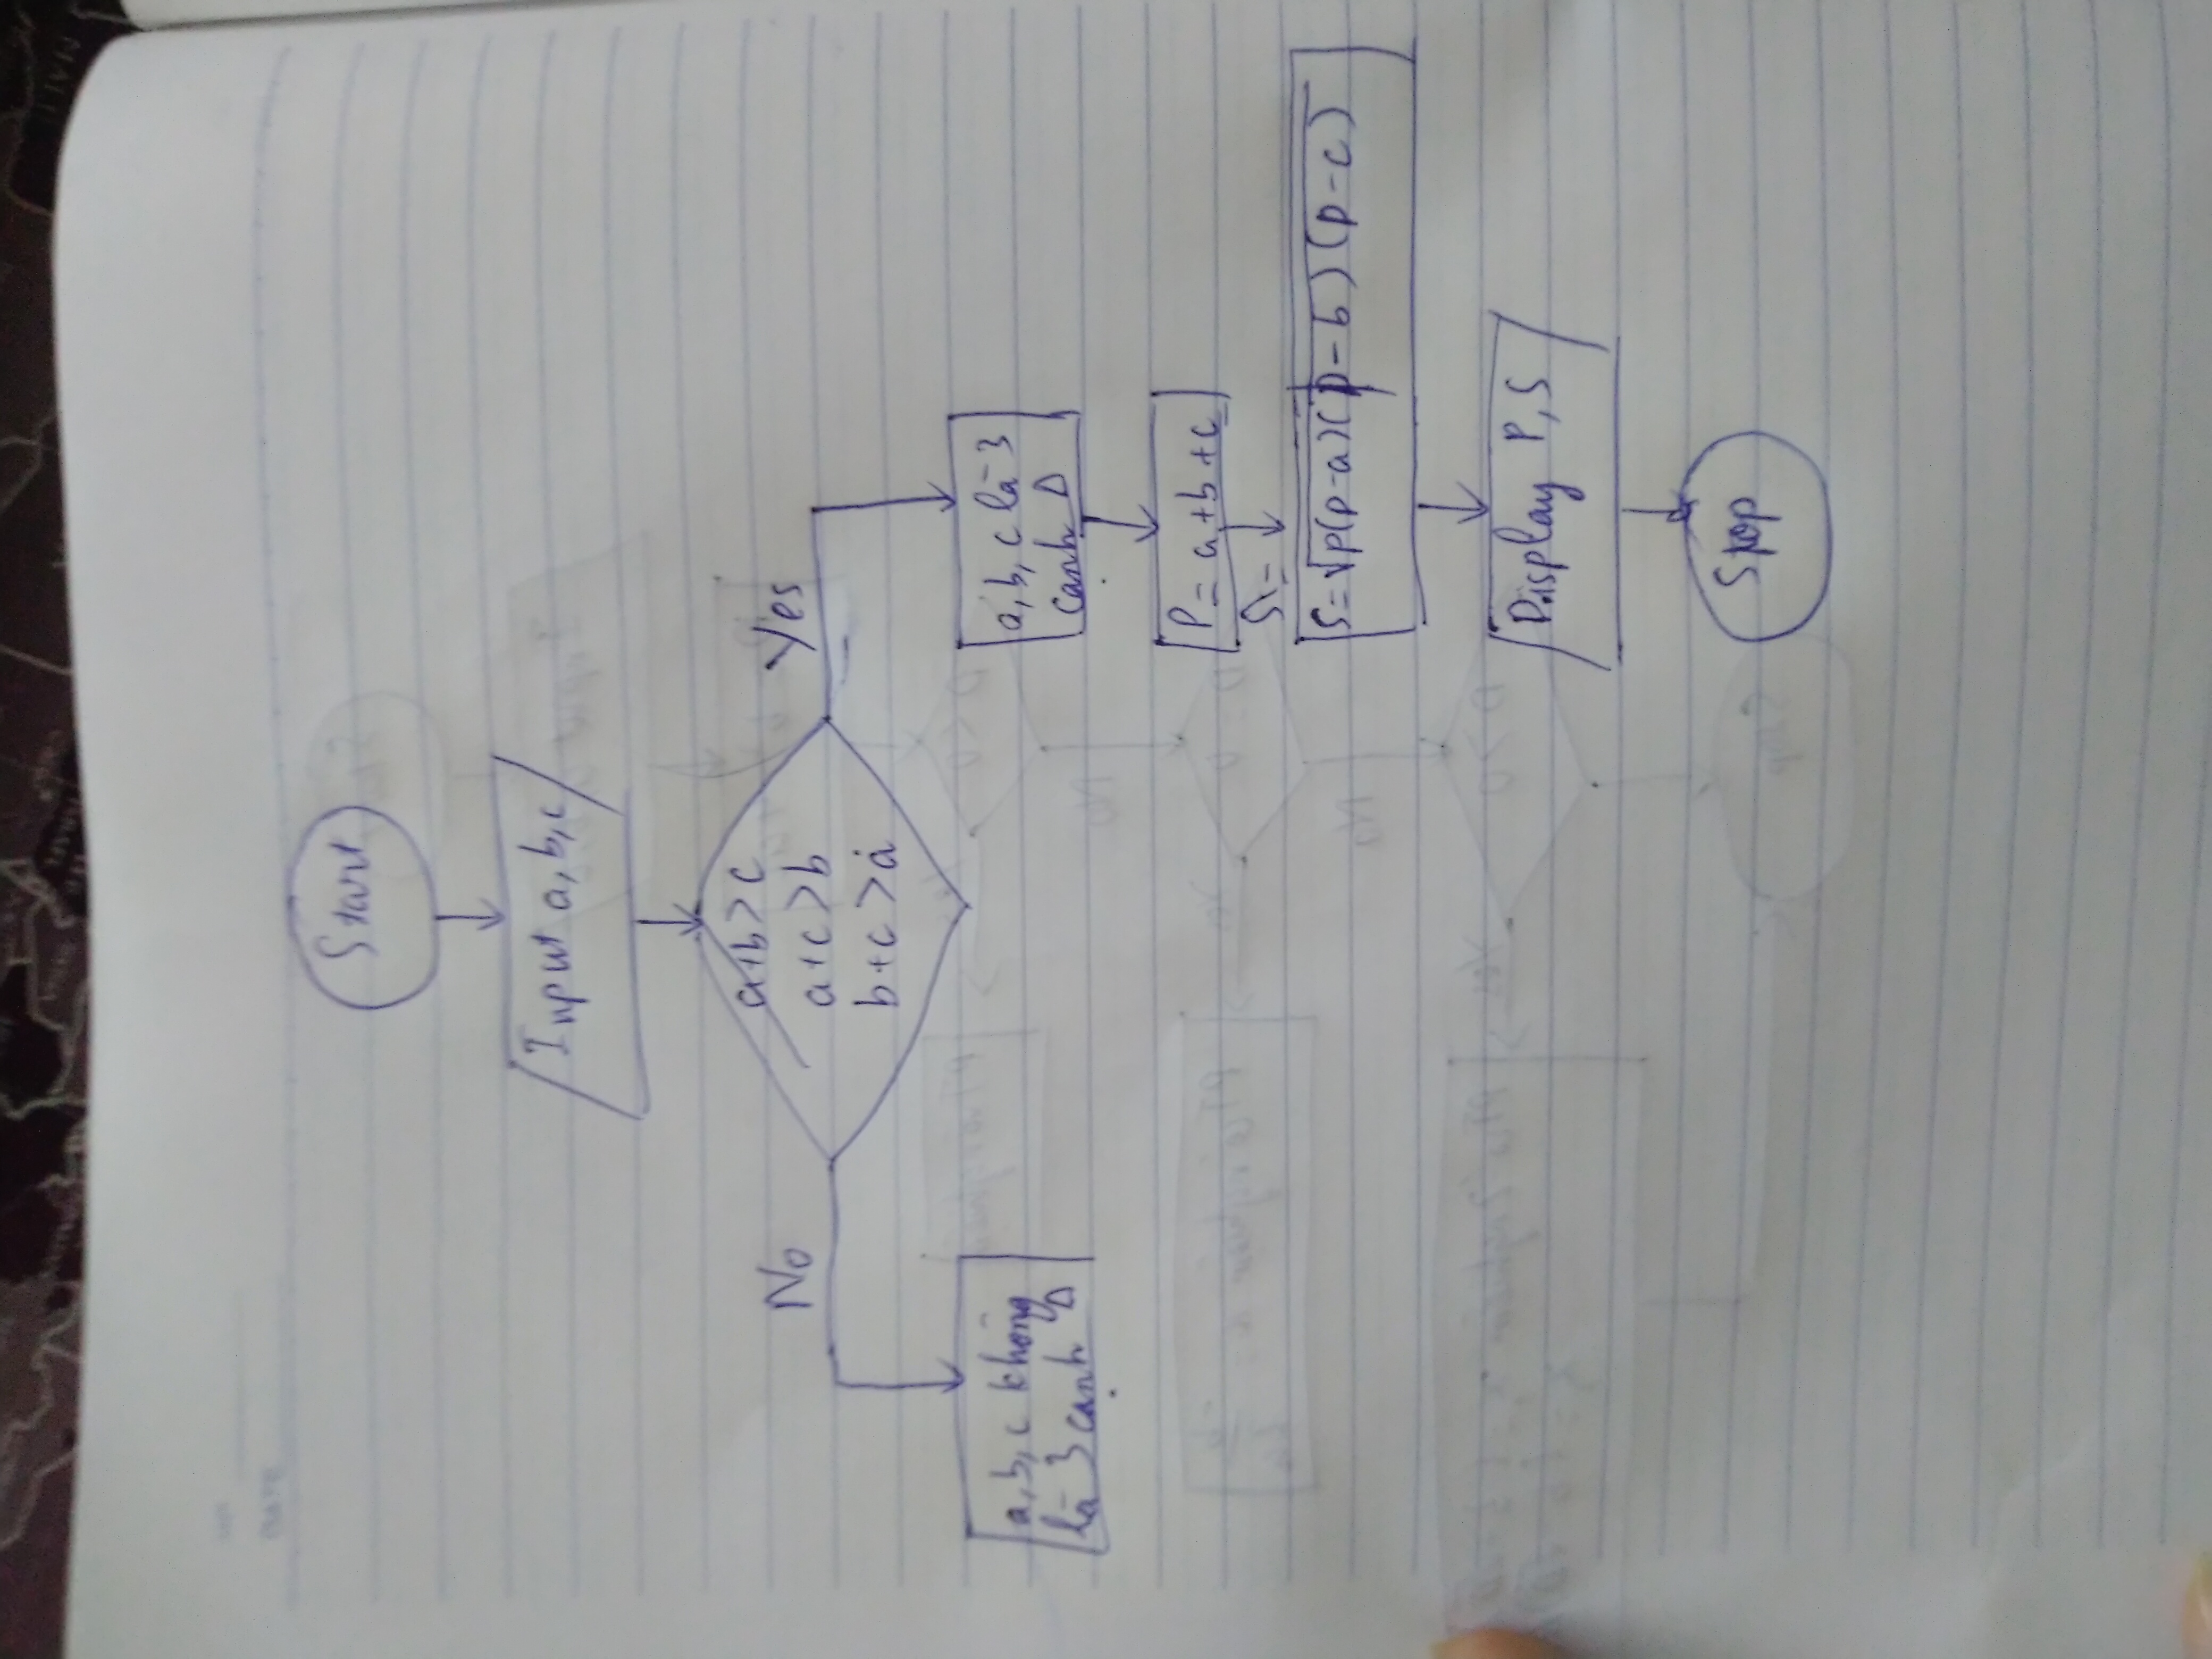 Start
Input a, b, c
a+b>c
a+c>b
b+c>a
No
Yes
a, b, c không
là 3 cạnh Δ
a, b, c là 3
cạnh Δ
P = a+b+c
S=√p(p-a)(p-b)(p-c)
Display P, S
Stop